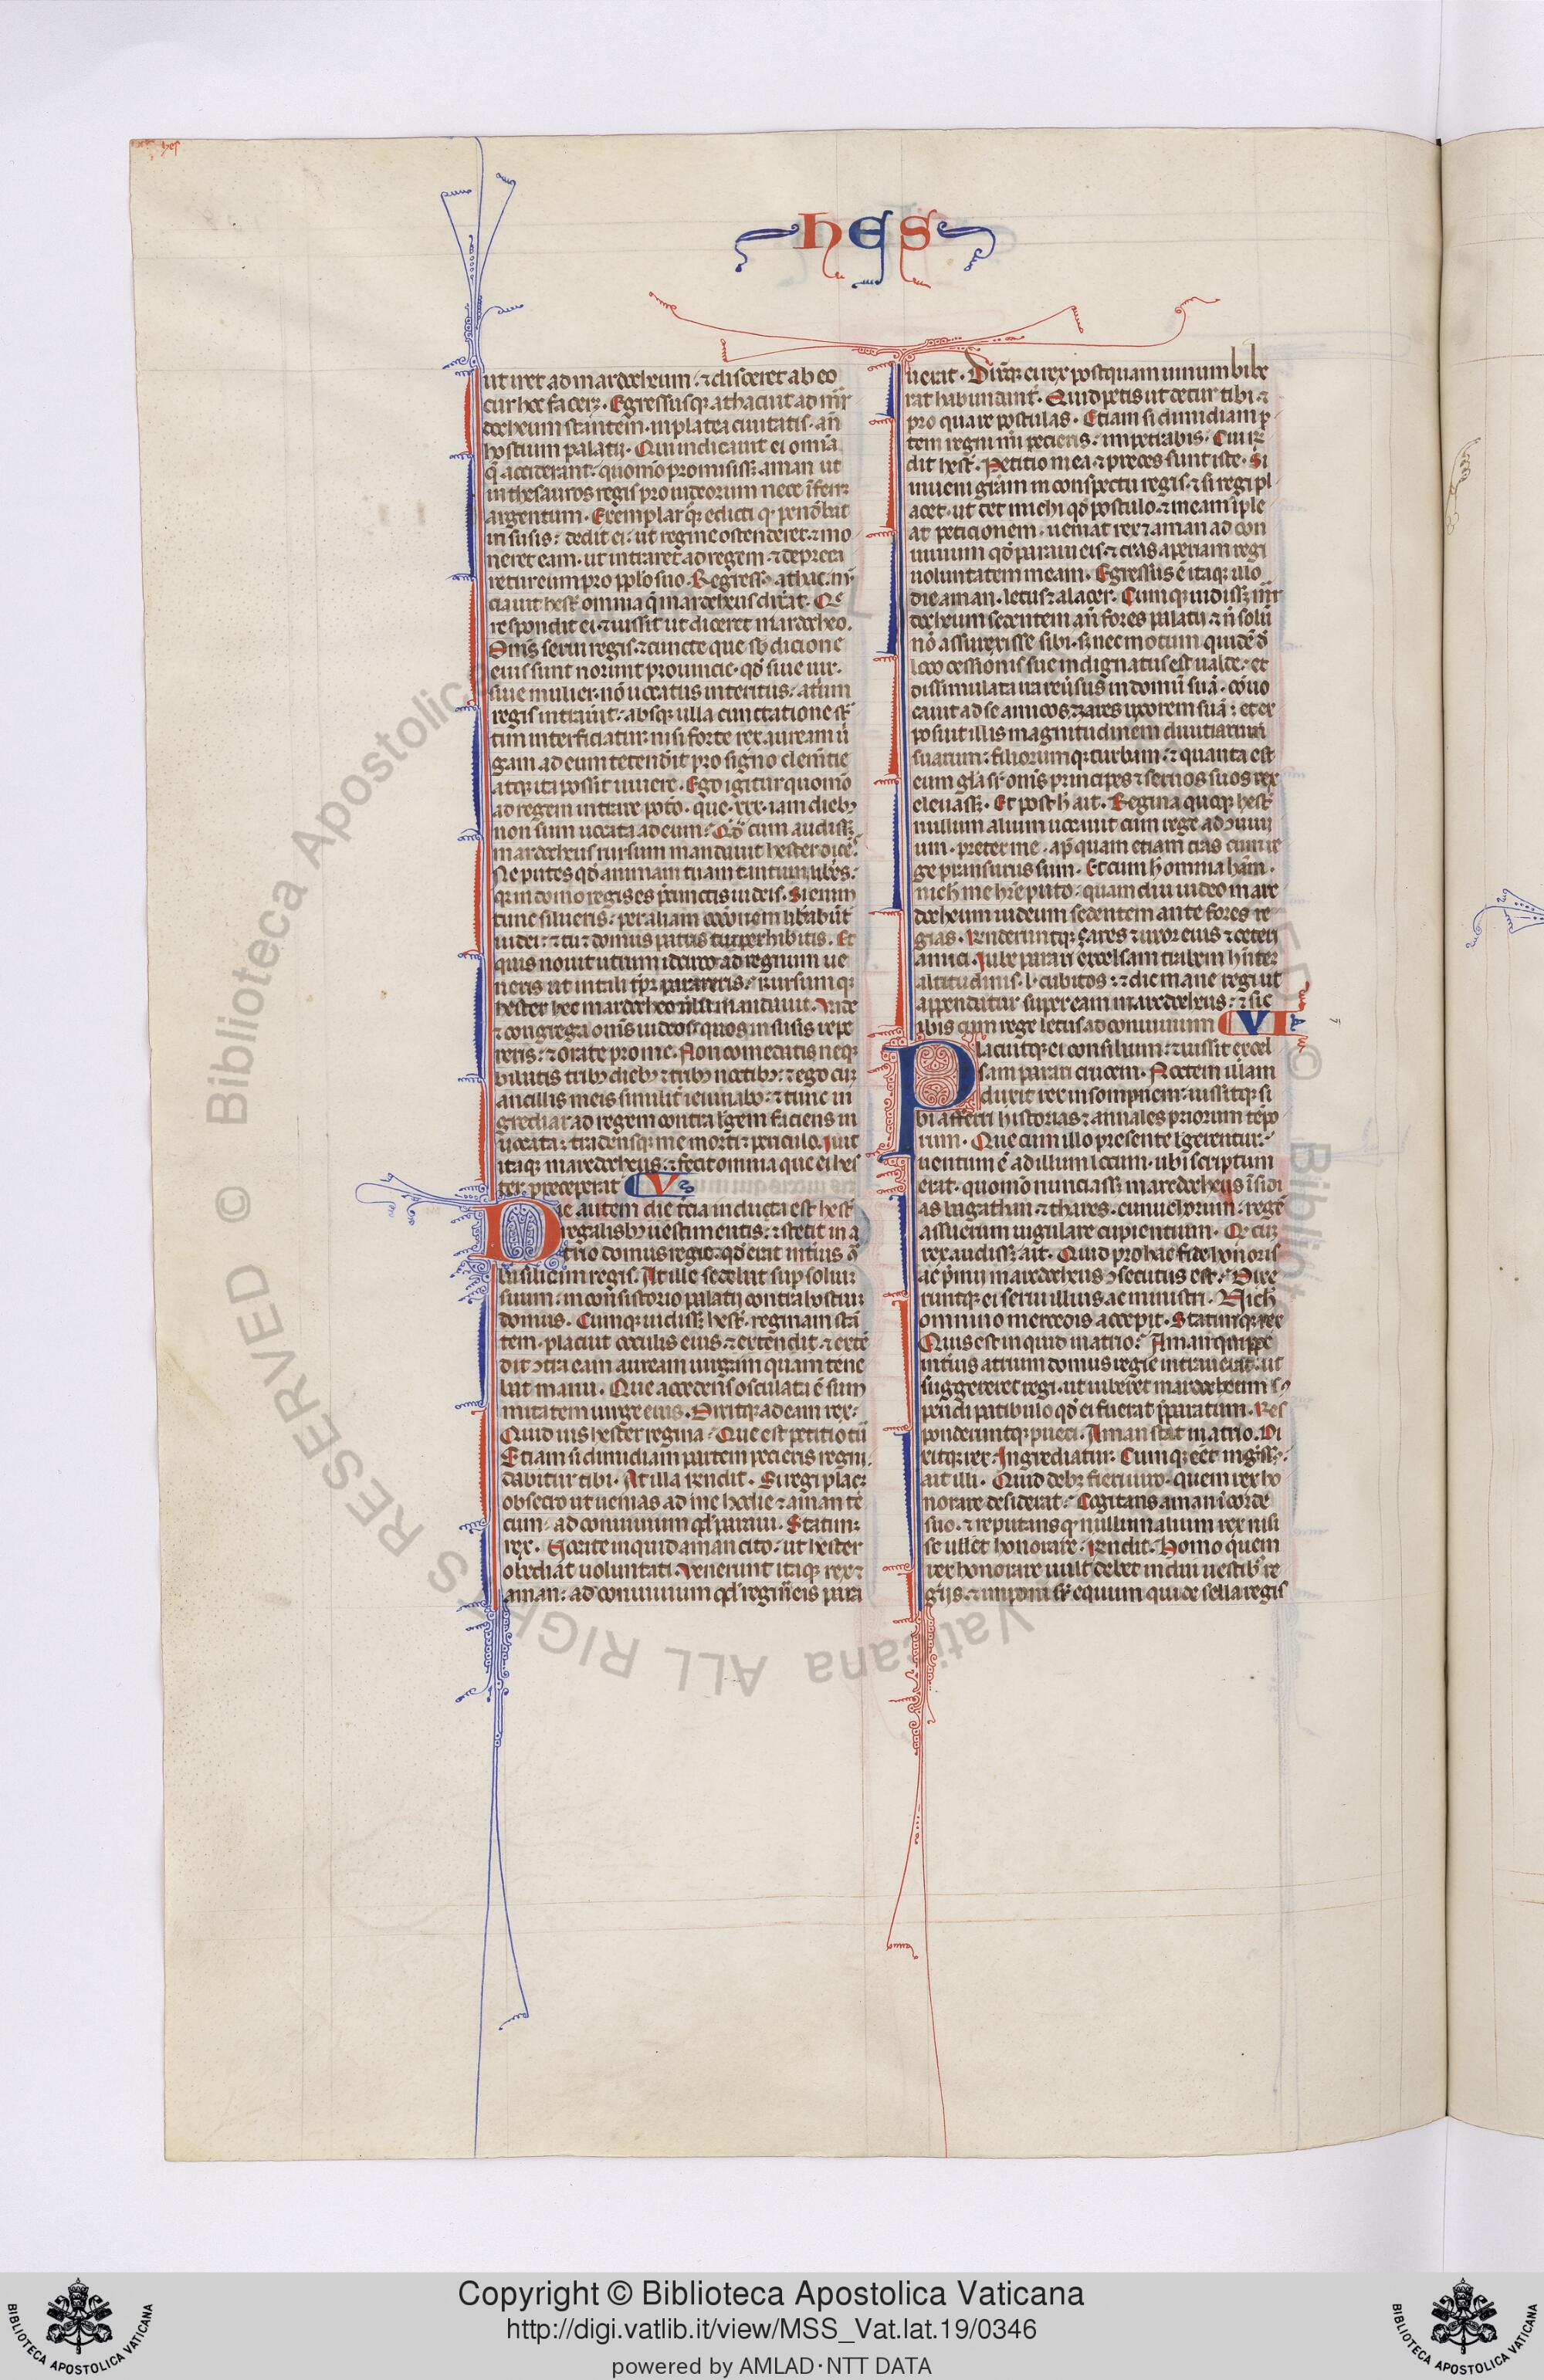 hes
hES
ut iret ad mardocheum: ⁊ disceret ab eo
cur hoc facerꝫ. Egressusqꝫ athac iuit ad mar
docheum stantem in platea ciuitatis. an̄
hostium palatii. Qui indicauit ei omnia
q̄ acciderant: quomō promisissꝫ aman ut
in thesauros regis pro iudeorum nece īferrꝫ
argentum. Exemplar qꝫ edicti qd̄ pendebat
in susis: dedit ei: ut regine ostenderet ⁊ mo
neret eam. ut intraret ad regem. ⁊ depreca
retur eum pro pplo suo. Regressꝰ athac. nū
ciauit hest̄ omnia q̄ mardocheus dix̄at. Que
respondit ei. ⁊ iussit ut diceret mardocheo.
Om̄s serui regis. ⁊ cuncte que sb̄ dicione
eius sunt norunt prouincie. qd̄ siue uir.
siue mulier. nō uocatus interius atrium
regis intrauit: absqꝫ ulla cunctatione st̄a
tim interficiatur. nisi forte rex auream uir
gam ad eum tetenderit pro signo clemētie
atqꝫ ita possit uiuere. Ego igitur quomō
ad regem intrare potero. que .xxx. iam diebꝫ
non sum uocata ad eum. Qd̄ cum audissꝫ
mardocheus rursum mandauit hester dicēs
Ne putes qd̄ animam tuam tantum liberes:
qꝛ in domo regis es p̄ cunctis iudeis. Si enim
tunc silueris: per aliam occōnem libabūt̄
iudei: ⁊ tu ⁊ domus patris tui peribitis. Et
quis nouit utrum idcirco ad regnum ue
neris ut in tali tp̄r parareris. Rursum qꝫ
hester hec mardocheo uerba mandauit. Vade
⁊ congrega om̄s iudeos quos in susis repe
reris: ⁊ orate pro me. Non comedatis neqꝫ
bibatis tribꝫ diebꝫ ⁊ tribꝫ noctibꝫ: ⁊ ego cū
ancillis meis similit̄ ieiunabo: ⁊ tunc in
grediar ad regem contra legem faciens in
uocata: tradensqꝫ me morti ⁊ periculo. Iuit
itaqꝫ mardocheus: ⁊ fecit omnia que ei hes
ter preceperat V
Die autem die t̄cia inducta est hest̄
regalisbꝫ uestimentis: ⁊ stetit in a
trio domus regie. qd̄ erat interius. ꝯ̄
basilicam regis. At ille sedebat sup solium
suum. in consistorio palatii contra hostium
domus. Cumqꝫ uidissꝫ hest̄ reginam stā
tem. placuit oculis eius. ⁊ extendit. ⁊ extē
dit ꝯtra eam auream uirgam quam tene
bat manu. Que accedens osculata ē sum
mitatem uirge eius. Dixitqꝫ ad eam rex:
Quid uis hester regina. Que est petitio tua
Etiam si dimidiam partem pecieris regni.
dabitur tibi. At illa rendit. Si regi placꝫ
obsecro ut uenias ad me hodie ⁊ aman te
cum. ad conuiuium qd̄ paraui. Statimqꝫ
rex. Vocate inquid aman cito: ut hester
obediat uoluntati. Venerunt itaqꝫ rex ⁊
aman: ad conuiuium qd̄ regina eis para
uerat. Dixitqꝫ ei rex postquam uinum bibe
rat habundant̄. Quid petis ut detur tibi ⁊
pro qua re postulas. Etiam si dimidiam p̄
tem regni mī pecieris: impetrabis. Cui rn̄
dit hest̄. Petitio mea ⁊ preces sunt iste. Si
inueni grām in conspectu regis. ⁊ si regi pl
acet. ut det michi qd̄ postulo. ⁊ meam īple
at peticionem. ueniat rex ⁊ aman ad con
uiuium qd̄ paraui eis. ⁊ cras aperiam regi
uoluntatem meam. Egressus ē itaqꝫ illo
die aman. letus ⁊ alacer. Cumqꝫ uidissꝫ mar
docheum sedentem an̄ fores palatii ⁊ n̄ solū
nō assurexisse sibi. sꝫ nec motum quidē d̄
loco cessionis sue indignatus est ualde. et
dissimulata ira reūsus in domū suā. cōuo
cauit ad se amicos. ⁊ zares uxorem suā: et ex
posuit illis magnitudinem diuitiarum
suarum: filiorumqꝫ turbam. ⁊ quanta est
eum gl̄a sr̄ om̄s principes ⁊ seruos suos rex
eleuassꝫ. Et post h̄ ait. Regina quoqꝫ hest̄
nullum alium uocauit cum rege ad ꝯuiui
um. preter me. ap̄ quam etiam cras cum re
ge pransurus sum. Et cum h̄ omnia ham̄.
nich̄ me h̄re puto: quam diu uideo mardo
docheum iudeum sedentem ante fores re
gias. Renderuntqꝫ zares ⁊ uxor eius ⁊ ceteri
amici. Iube parari excelsam trabem hn̄tem
altitudinis .l. cubitos: ⁊ dic mane regi ut
appendatur super eam mardocheus: ⁊ sic
ibis cum rege letus ad conuiuium VI
Placuitqꝫ ei consilium: ⁊ iussit excel
sam parari crucem. Noctem illam
duxit rex insompnem: iussitqꝫ si
bi afferri historias ⁊ annales priorum tēpo
rum. Que cum illo presente legerentur:
uentum ē ad illum locum. ubi scriptum
erat. quomō nunciassꝫ mardocheus īsidi
as bagathan ⁊ thares. eunuchorum: regē
assuerum iugulare cupientium. Qd̄ cum
rex audissꝫ ait. Quid pro hac fide honoris
ac p̄mii mardocheus ꝯsecutus est. Dixe
runtqꝫ ei serui illius ac ministri. Nich̄
omnino mercedis accepit. Statimqꝫ rex
Quis est inquid in atrio. Aman quippe
interius atrium domus regie intrauerat. ut
suggereret regi. ut iuberet mardocheum sꝰ
pendi patibulo qd̄ ei fuerat p̄paratum. Res
ponderuntqꝫ pueri. Aman stat in atrio. Di
xitqꝫ rex. Ingrediatur. Cumqꝫ eēt ingressꝰ:
ait illi. Quid debꝫ fieri uiro. quem rex ho
norare desiderat. Cogitans aman ī corde
suo. ⁊ reputans qd̄ nullum alium rex nisi
se uellet honorare: rendit. Homo quem
rex honorare uult debet indui uestibꝰ re
giis. ⁊ imponi sr̄ equum qui de sella regis
Copyright © Biblioteca Apostolica Vaticana
http://digi.vatlib.it/view/MSS_Vat.lat.19/0346
powered by AMLAD·NTT DATA
BIBLIOTECA APOSTOLICA VATICANA
BIBLIOTECA APOSTOLICA VATICANA
© Biblioteca Apostolica Vaticana ALL RIGHTS RESERVED